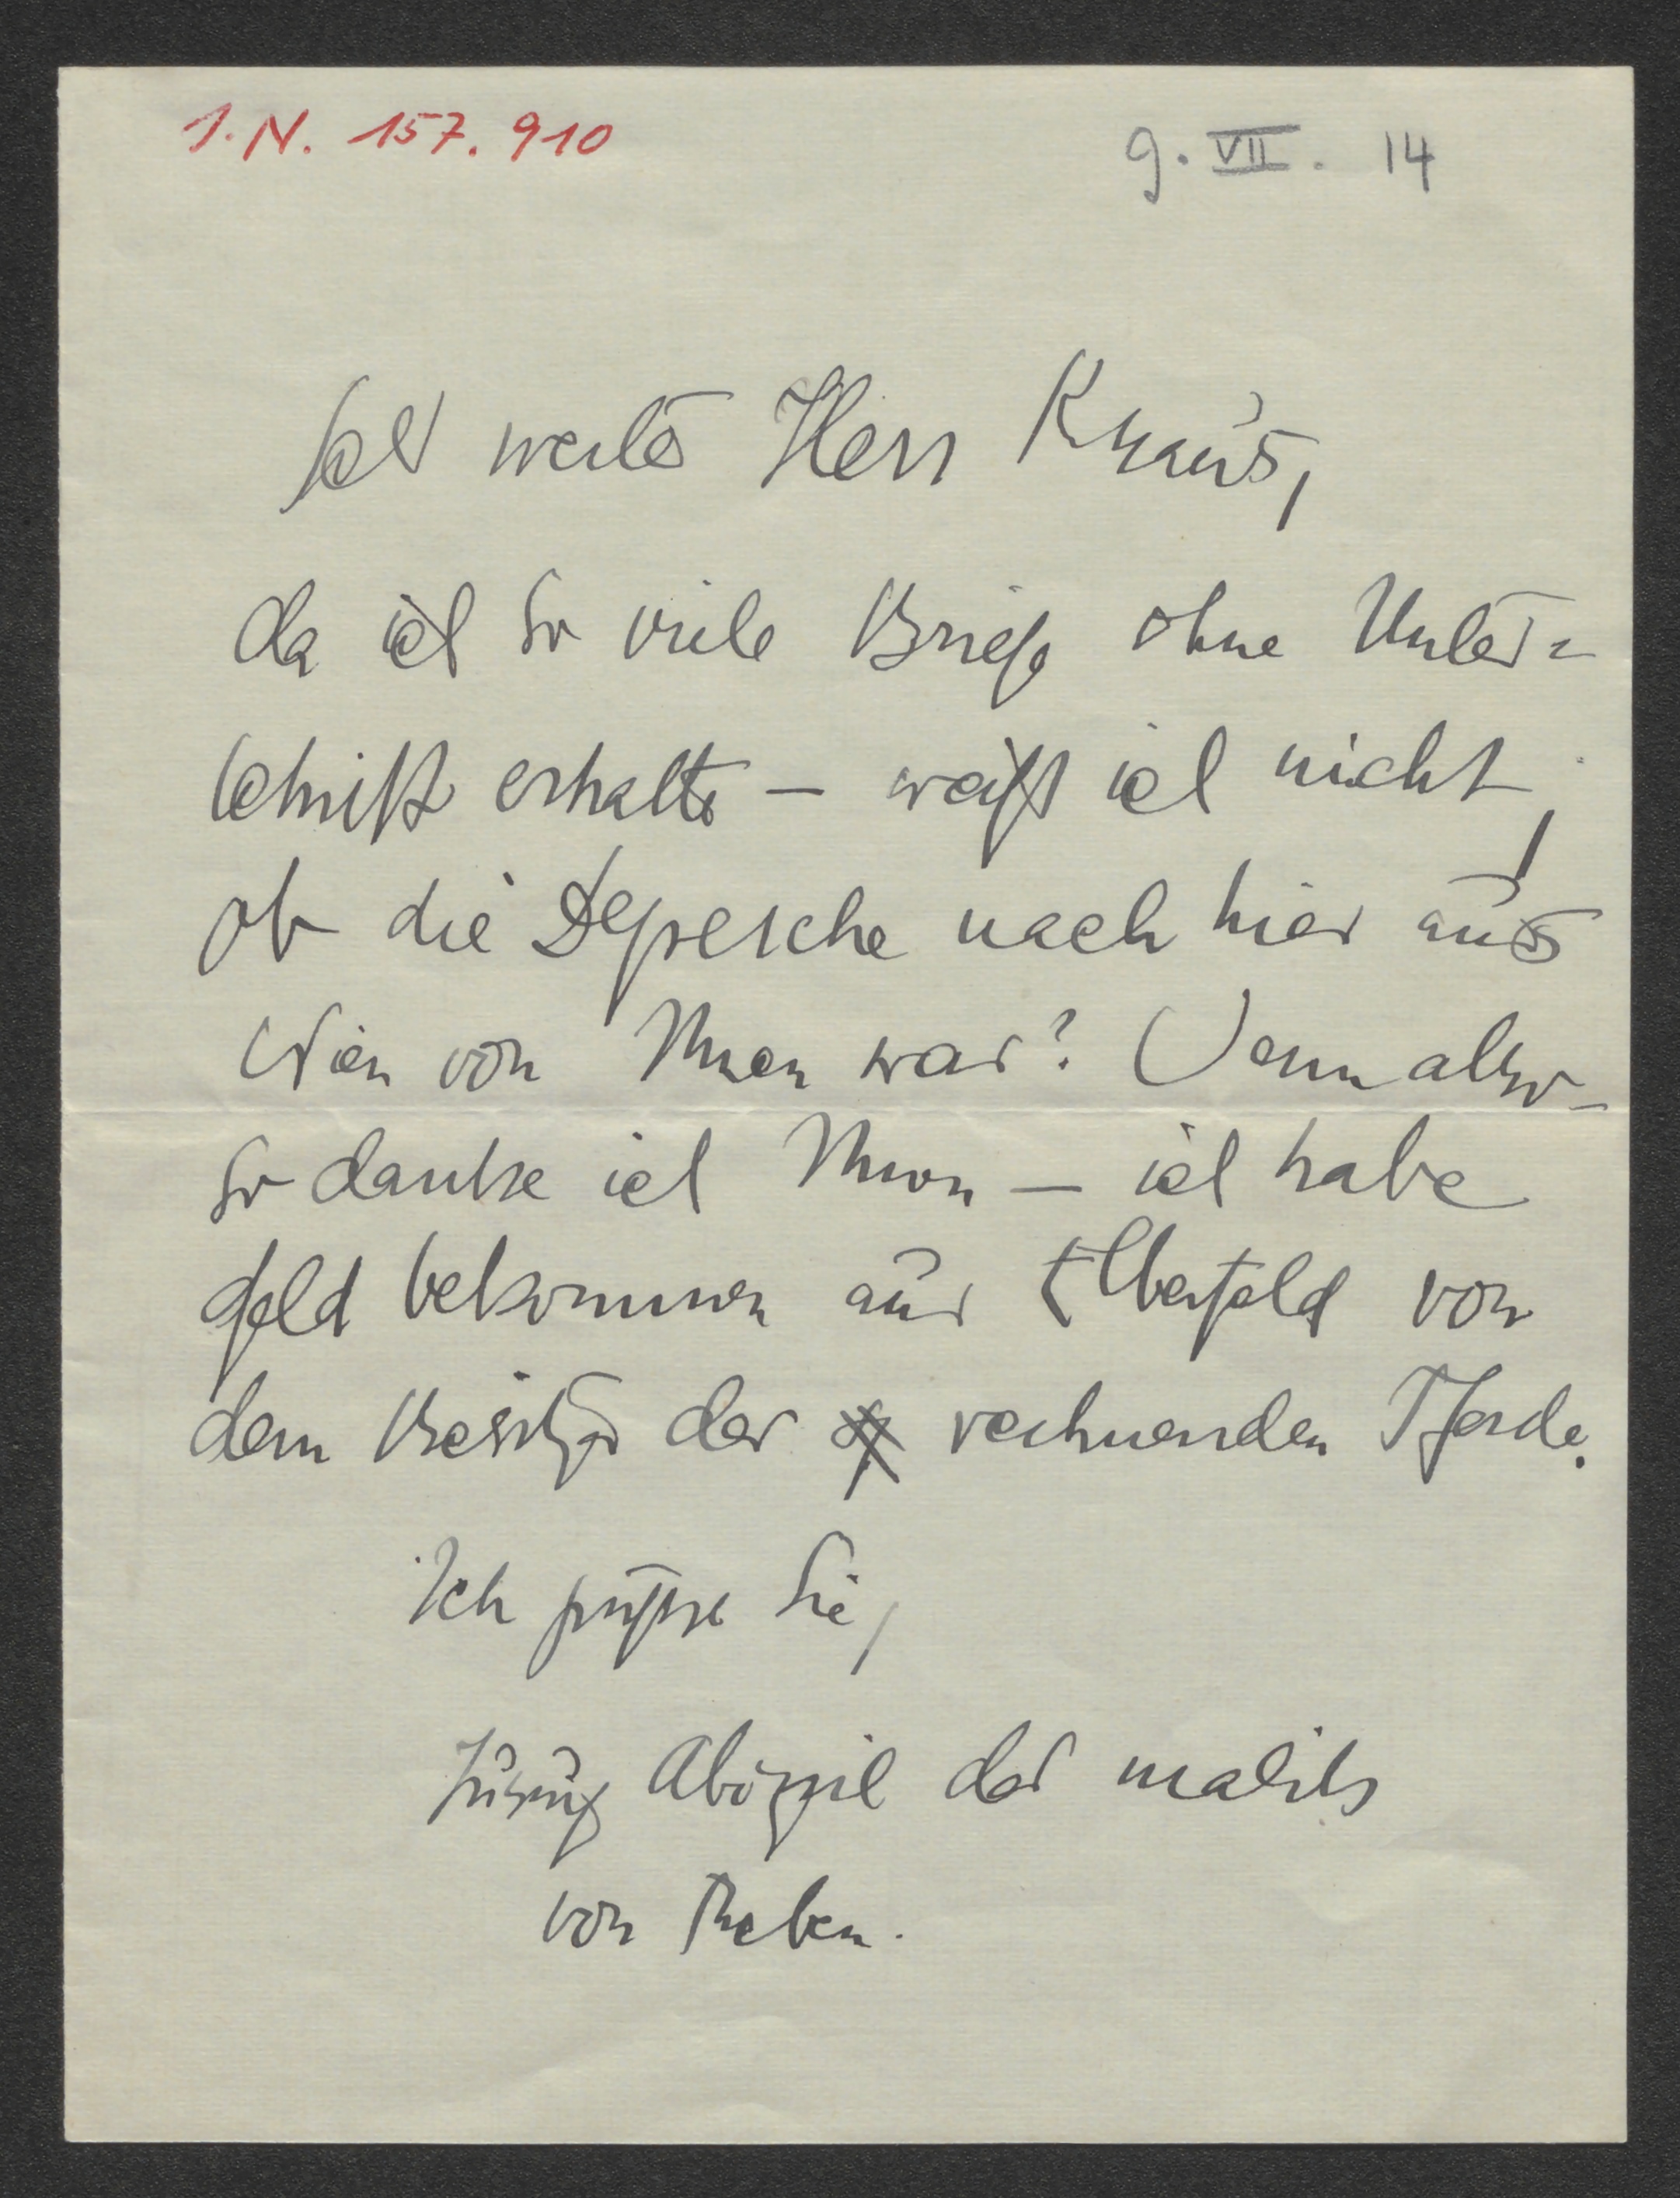 I.N. 157.910
9. VII. 14
Sehr werter Herr Kraus,
da ich so viele Briefe ohne Unter=
schrift erhalte – weiß ich nicht,
ob die Depesche nach hier aus
Wien von Ihnen war? Wenn also –
so danke ich Ihnen – ich habe
Geld bekommen aus Elberfeld von
dem Besitzer der rechnenden Pferde.
Ich grüße Sie,
Jussuf Abigail der malik
von Theben.